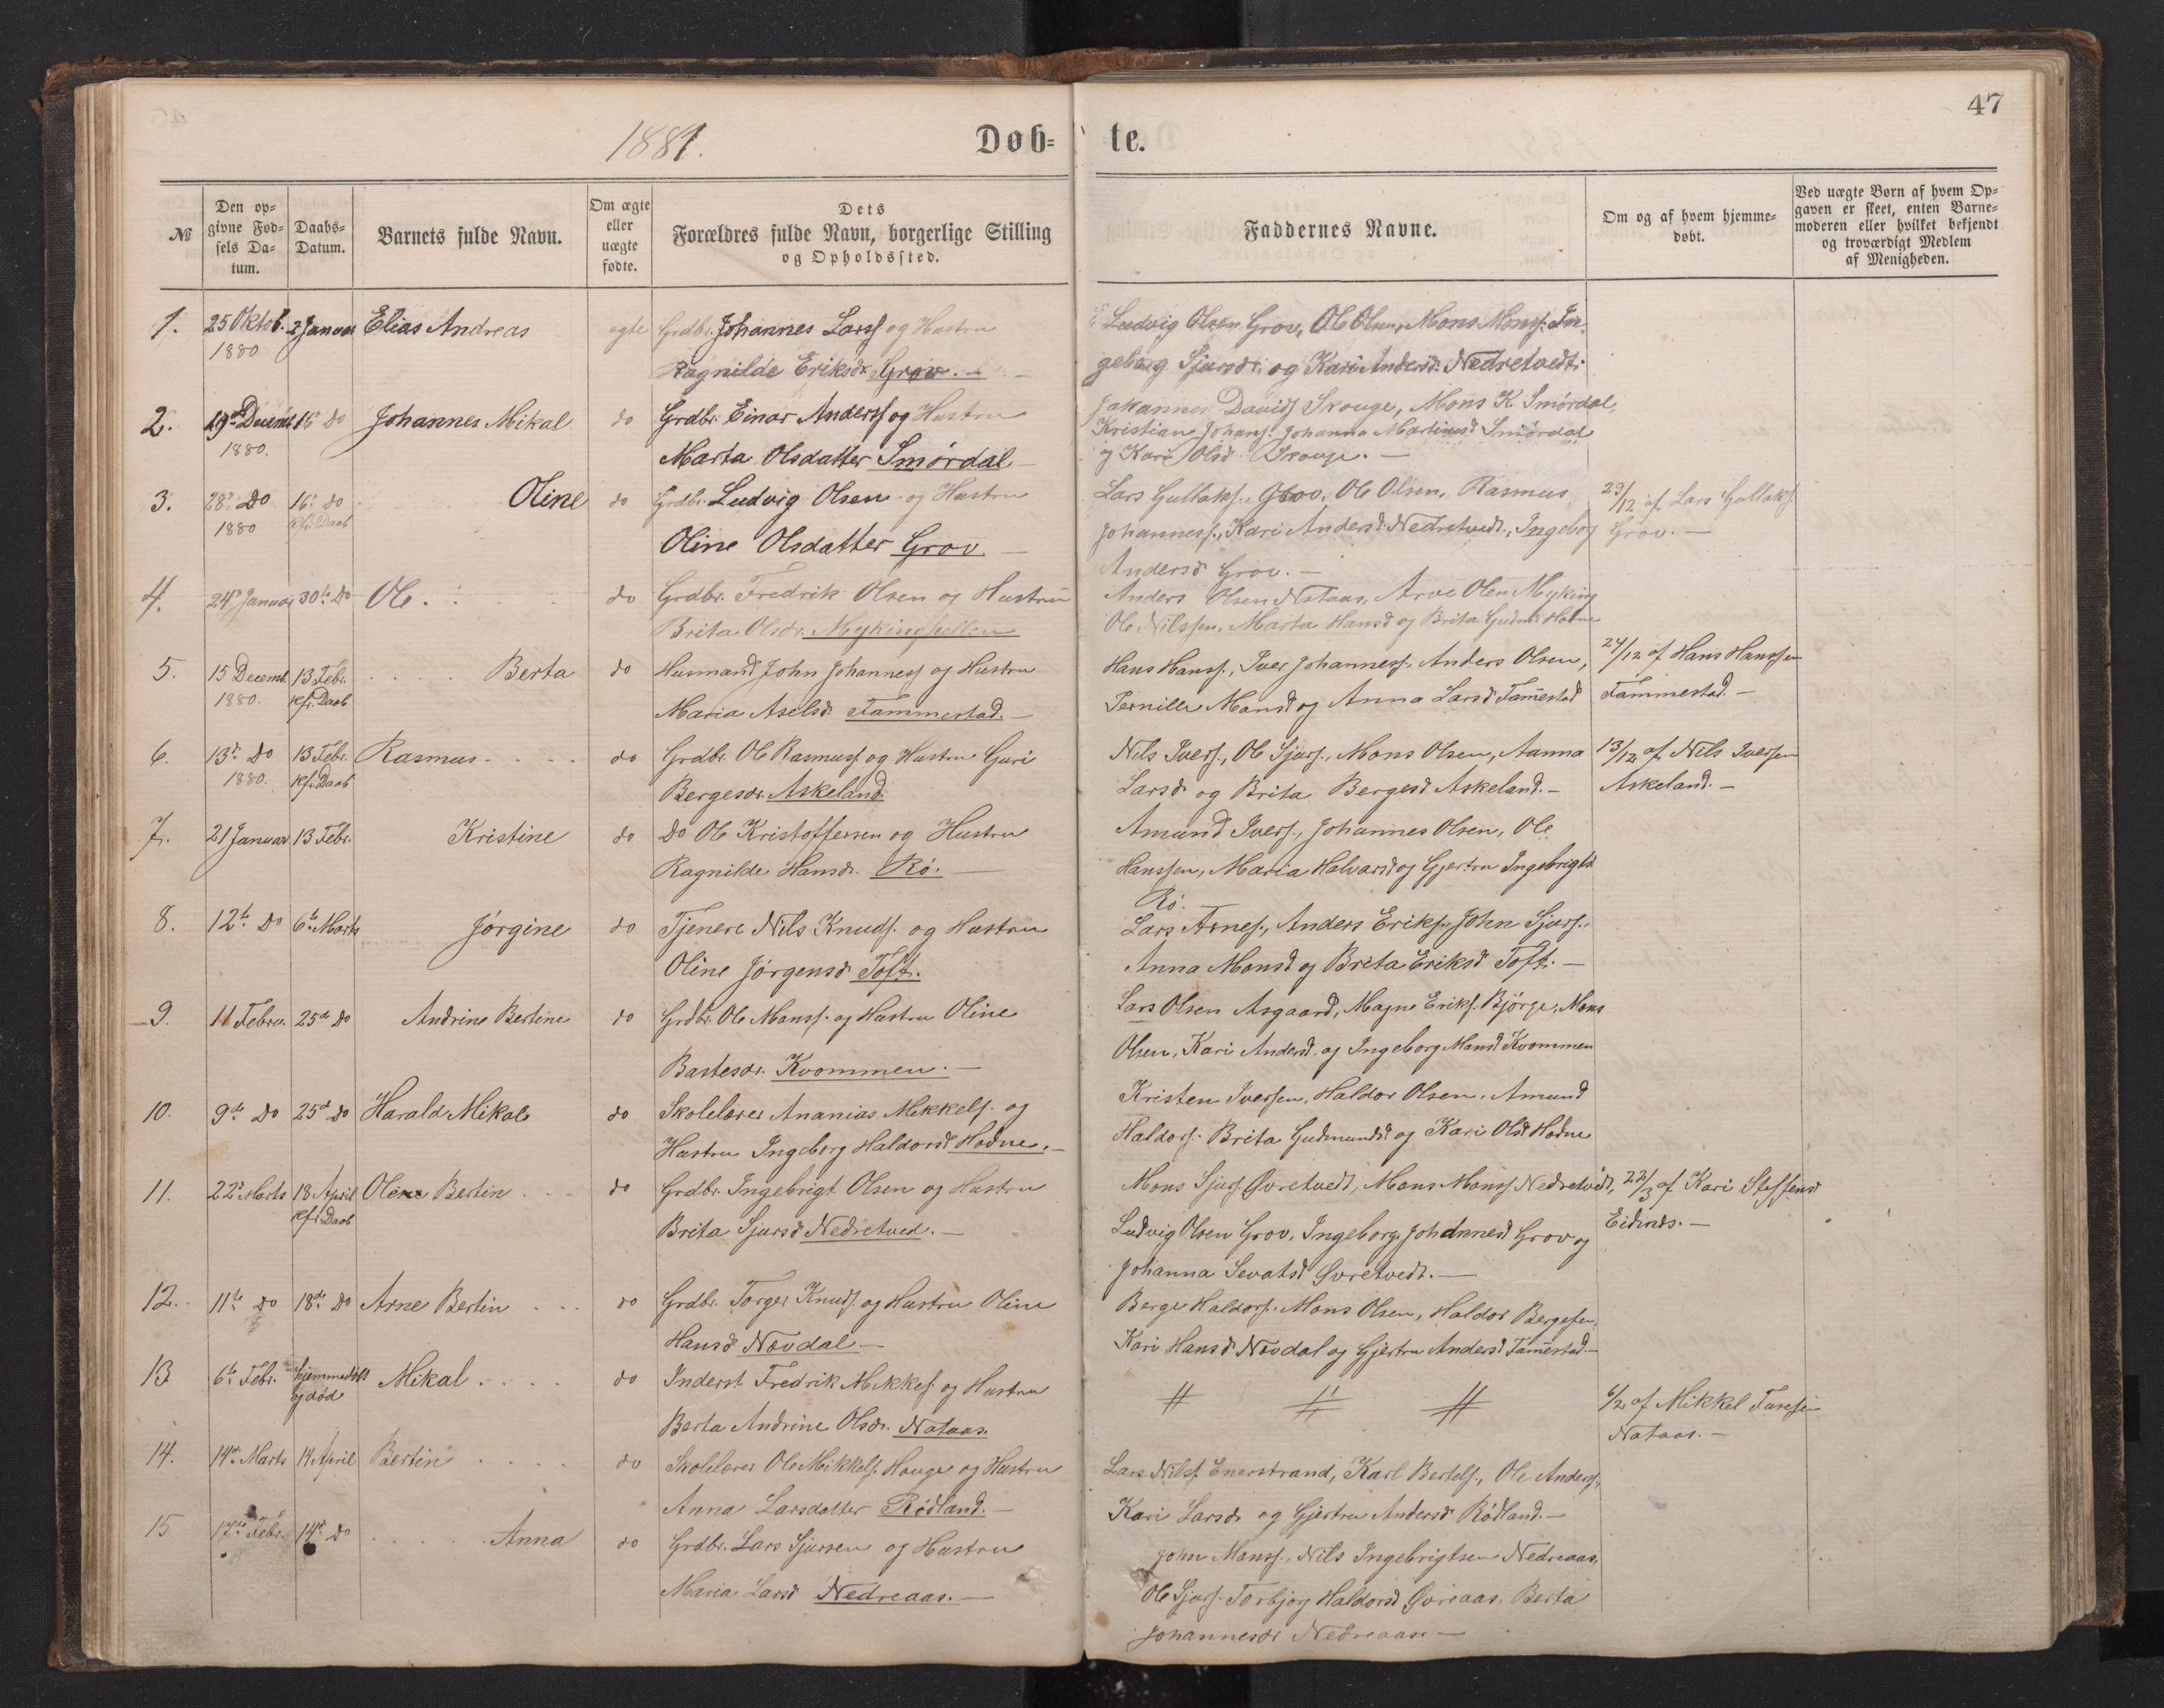 47
1881.
Døb- te.
№
Den opgivne Fødsels Datum.
Daabs-Datum.
Barnets fulde Navn.
Om ægte eller uægte fødte.
Dets Forældres fulde Navn, borgerlige Stilling og Opholdssted.
Faddernes Navne.
Om og af hvem hjemmedøbt.
Ved uægte Børn af hvem Opgaven er skeet, enten Barnemoderen eller hvilket bekjendt og troværdigt Medlem af Menigheden.
1. 25 Oktob. 2 Januar Elias Andreas ægte Grdbr. Johannes Larss og Hustru Ludvig Olsen Grov, Ole Olsen, Mons Monss. In-
1880 Ragnilde Eriksdr. Grov. geborg Sjursdr. og Kari Andersd. Nedretvedt.
2. 19de Decemb 16 do Johannes Mikal do Grdbr. Einar Anderss og Hustru Johannes Davids Skouge, Mons K. Smördal,
1880. Marta Olsdatter Smördal Kristian Johans. Johanna Martinusd Smördal
og Kari Olsd. Skouge.
3. 28de Do 16. do Oline do Grdbr. Ludvig Olsen og Hustru Lars Gullaks., Grov, Ole Olsen, Rasmus 29/12 af Lars Gullaks
1880 kfr. Daab Oline Olsdatter Grov. Johanness., Kari Andersd. Nedretvedt, Ingeborg Grov.
Andersd Grov.
4. 24de Januar 30te Do Ole. do Grdbr. Fredrik Olsen og Hustru Anders Olsen Nataas, Arve Olen Myking
Brita Olsdr. Ole Nilssen, Marta Hansd og Brita Gudm. Hodne
5. 15 Decemb. 13 Febr. Berta do Husmand John Johanness og Hustru Hans Hanss., Iver Johanness., Anders Olsen, 27/12 af Hans Hanssen
1880. kfr. Daab Maria Askelsd. Tammestad. Pernille Mansd og Anna Larsd Tam̄estad Tammestad.
6. 13de Do 13 Febr. Rasmus do Grdbr. Ole Rasmuss og Hustru Guri Nils Ivers., Ole Sjurs., Mons Olsen, Aanna 13/12 af Nils Iversen
1880. kfr. Daab Bergesdr. Askeland. Larsd. og Brita Bergesd Askeland. Askeland.
7. 21 Januar 13 Febr. Kristine do Do Ole Kristoffersen og Hustru Amund Ivers., Johannes Olsen, Ole
Ragnilde Hansdr. Rö. Hanssen, Maria Halvarsd og Gjertru Ingebrigtsd
Rö.
8. 12te Do 6te Marts Jørgine do Tjenere Nils Knuds. og Hustru Lars Arnes., Anders Eriks., John Sjurs.,
Oline Jørgensd. Toft. Anna Monsd og Brita Eriksd Toft.
9. 11 Febru. 25de Do Andrine Bertine do Grdbr. Ole Manss. og Hustru Oline Lars Olsen Asgaard, Magne Eriks. Bjørge, Mons
Bastesdr. Kvommen. Olsen, Kari Andersd. og Ingeborg Mansd Kvommen
10. 9de Do 25de do Harald Mikal do Skolelærer Ananias Mikkels. og Kristen Iversen, Haldor Olsen, Amund
Hustru Ingeborg Haldorsd Hodne. Haldors. Brita Gudmundsd og Kari Olsd Hodne
11. 22de Marts 18 April Bertin do Grdbr. Ingebrigt Olsen og Hustru Mons Sjurs. Øvretvedt, Mons Monss Nedretvedt, 22/3 af Kari Steffensd
kfr. Daab Brita Sjursd Nedretved. Ludvig Olsen Grov, Ingeborg Johannesd Grov og
Johanna Sevatsd Øvretvedt.
12. 11te Do 18de Do Arne Bertin do Grdbr. Torger Knuds. og Hustru Oline Berge Haldors. Mons Olsen, Haldor Bergesen,
Hansd. Novdal. Kari Hansd Novdal og Gjertru Andersd Tam̄estad.
13 6te Febr. hjemmedøbt Mikal do Inderst Fredrik Mikkels. og Hustru 6/2 af Mikkel
og død Berta Andrine Olsdr. Nataas. Nataas.
14. 14de Marts 14 April Bertin do Skolelærer Ole Mikkels. Hauge og Hustru Lars Nilss. Enerstrand, Karl Bertels., Ole Anders.,
Anna Larsdatter Rödland. Kari Larsdr. og Gjertru Andersd. Rödland.
15 17de Febr. 14de Do Anna do Grdbr. Lars Sjursen og Hustru John Manss., Nils Ingebrigtsen Nedreaas,
Maria Larsd Nedreaas. Ole Sjurs. Torbjørg Haldorsd Øvreaas, Berta
Johannesdr Nedreaas.